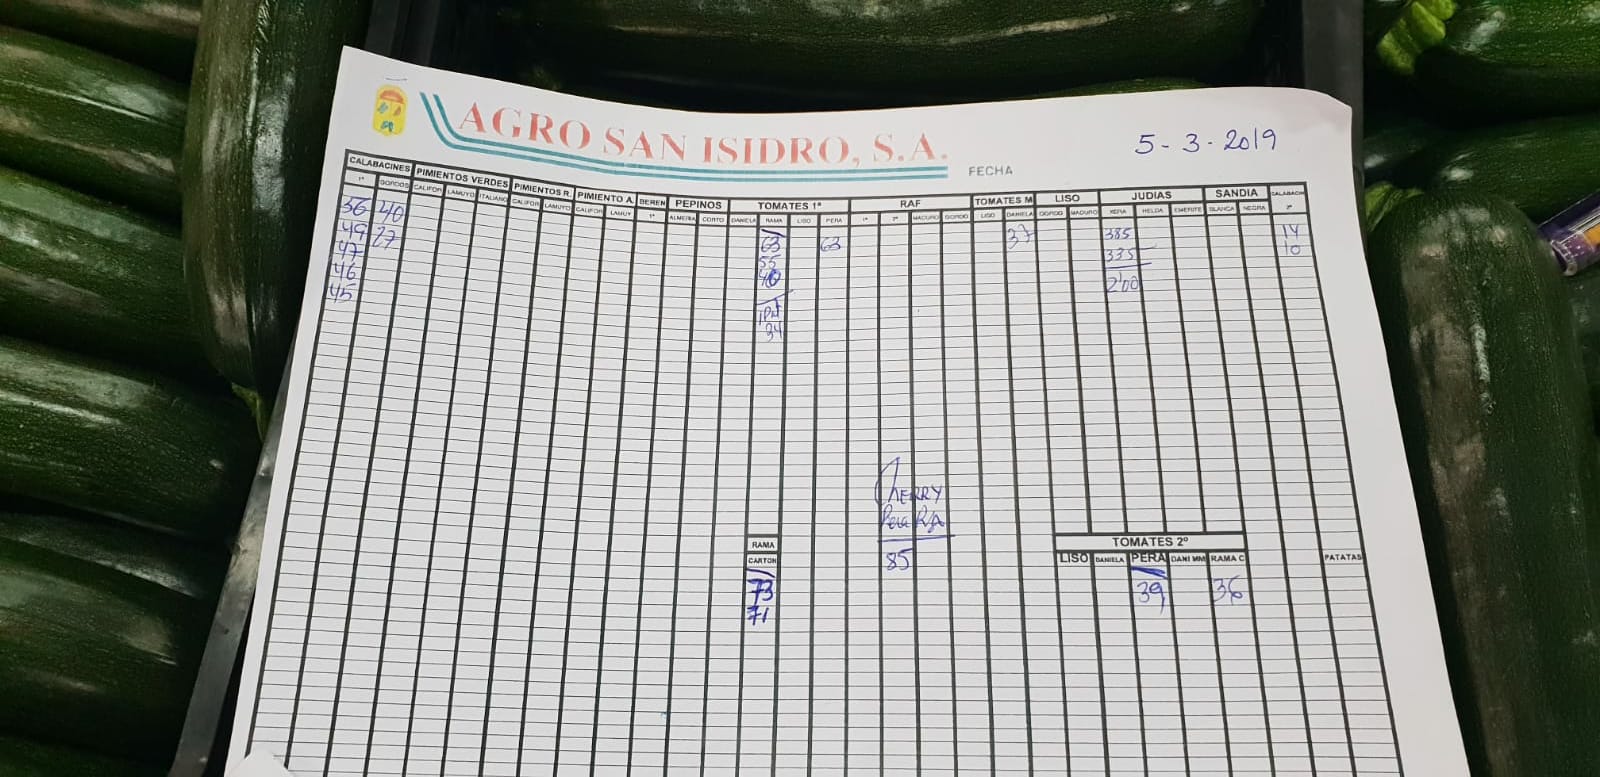 AGRO SAN ISIDRO, S.A.
FECHA
5-3-2019
CALABACINES PIMIENTOS VERDES PIMIENTOS R. PIMIENTO A. BEREN PEPINOS TOMATES 1ª RAF TOMATES M LISO JUDIAS SANDIA CALABACIN
1ª GORDOS CALIFOR LAMUYO ITALIANO CALIFOR LAMUYO CALIFOR LAMUY 1ª ALMERIA CORTO DANIELA RAMA LISO PERA 1ª 2ª MADURO GORDO LISO DANIELA GORDO MADURO XERA HELDA EMERITE BLANCA NEGRA 2ª
56 40 63 63 37 385 14
49 27 55 335 10
47 40 2'00
46
45 34
CHERRY
Pera
85
RAMA
CARTON
73
71
TOMATES 2º
LISO DANIELA PERA DANI MM RAMA C PATATAS
39 36